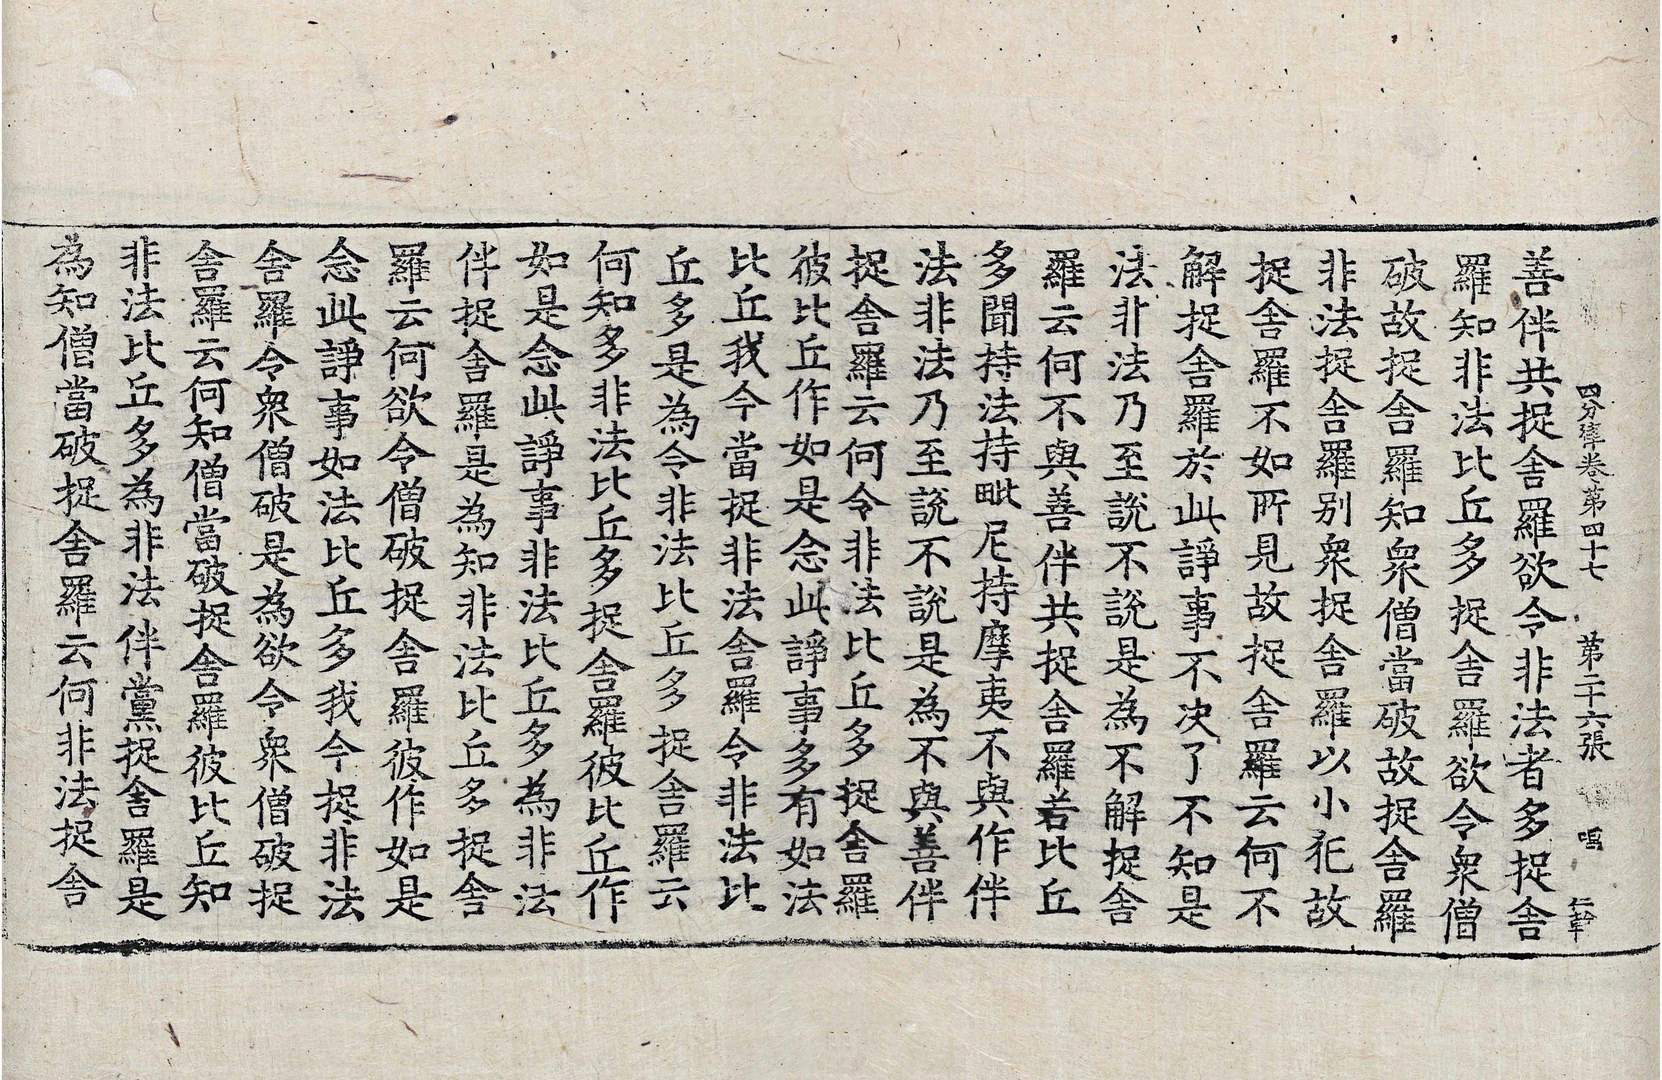 四分律卷第四十七 第二十六張
善伴共捉舍羅欲令非法者多捉舍
羅知非法比丘多捉舍羅欲令衆僧
破故捉舍羅知衆僧當破故捉舍羅
非法捉舍羅別衆捉舍羅以小犯故
捉舍羅不如所見故捉舍羅云何不
解捉舍羅於此諍事不决了不知是
法非法乃至說不說是為不解捉舍
羅云何不與善伴共捉舍羅若比丘
多聞持法持毗尼持摩夷不與作伴
法非法乃至說不說是為不與善伴
捉舍羅云何令非法比丘多捉舍羅
彼比丘作如是念此諍事多有如法
比丘我今當捉非法舍羅令非法比
丘多是為令非法比丘多捉舍羅云
何知多非法比丘多捉舍羅彼比丘作
如是念此諍事非法比丘多為非法
伴捉舍羅是為知非法比丘多捉舍
羅云何欲令僧破捉舍羅彼作如是
念此諍事如法比丘多我今捉非法
舍羅令衆僧破是為欲令衆僧破捉
舍羅云何知僧當破捉舍羅彼比丘知
非法比丘多為非法伴黨捉舍羅是
為知僧當破捉舍羅云何非法捉舍